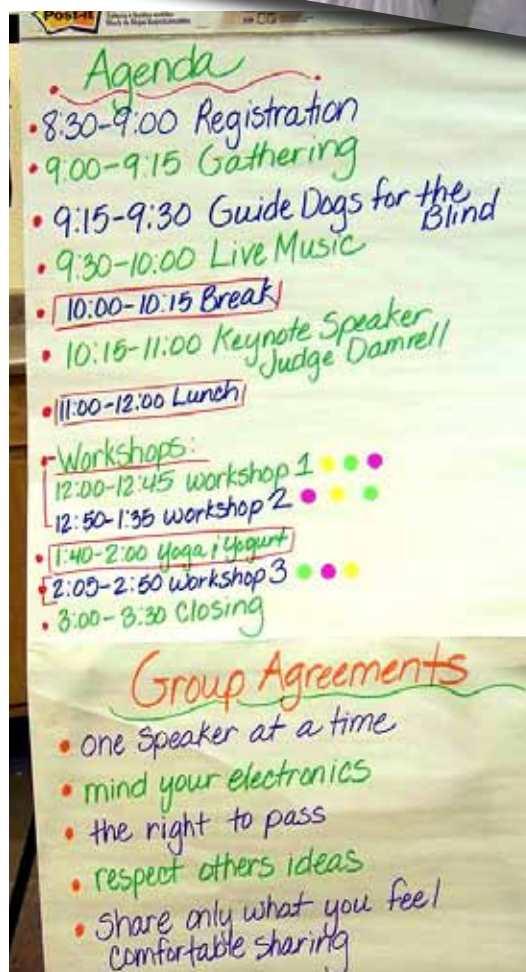 Post-it
Agenda
• 8:30-9:00 Registration
• 9:00-9:15 Gathering
• 9:15-9:30 Guide Dogs for the
Blind
• 9:30-10:00 Live Music
• 10:00-10:15 Break
• 10:15-11:00 Keynote Speaker
Judge Damrell
• 11:00-12:00 Lunch
Workshops:
12:00-12:45 workshop 1
12:50-1:35 workshop 2
• 1:40-2:00 Yoga & Yogurt
• 2:05-2:50 workshop 3
• 3:00-3:30 Closing
Group Agreements
• one speaker at a time
• mind your electronics
• the right to pass
• respect others ideas
• Share only what you feel
comfortable sharing